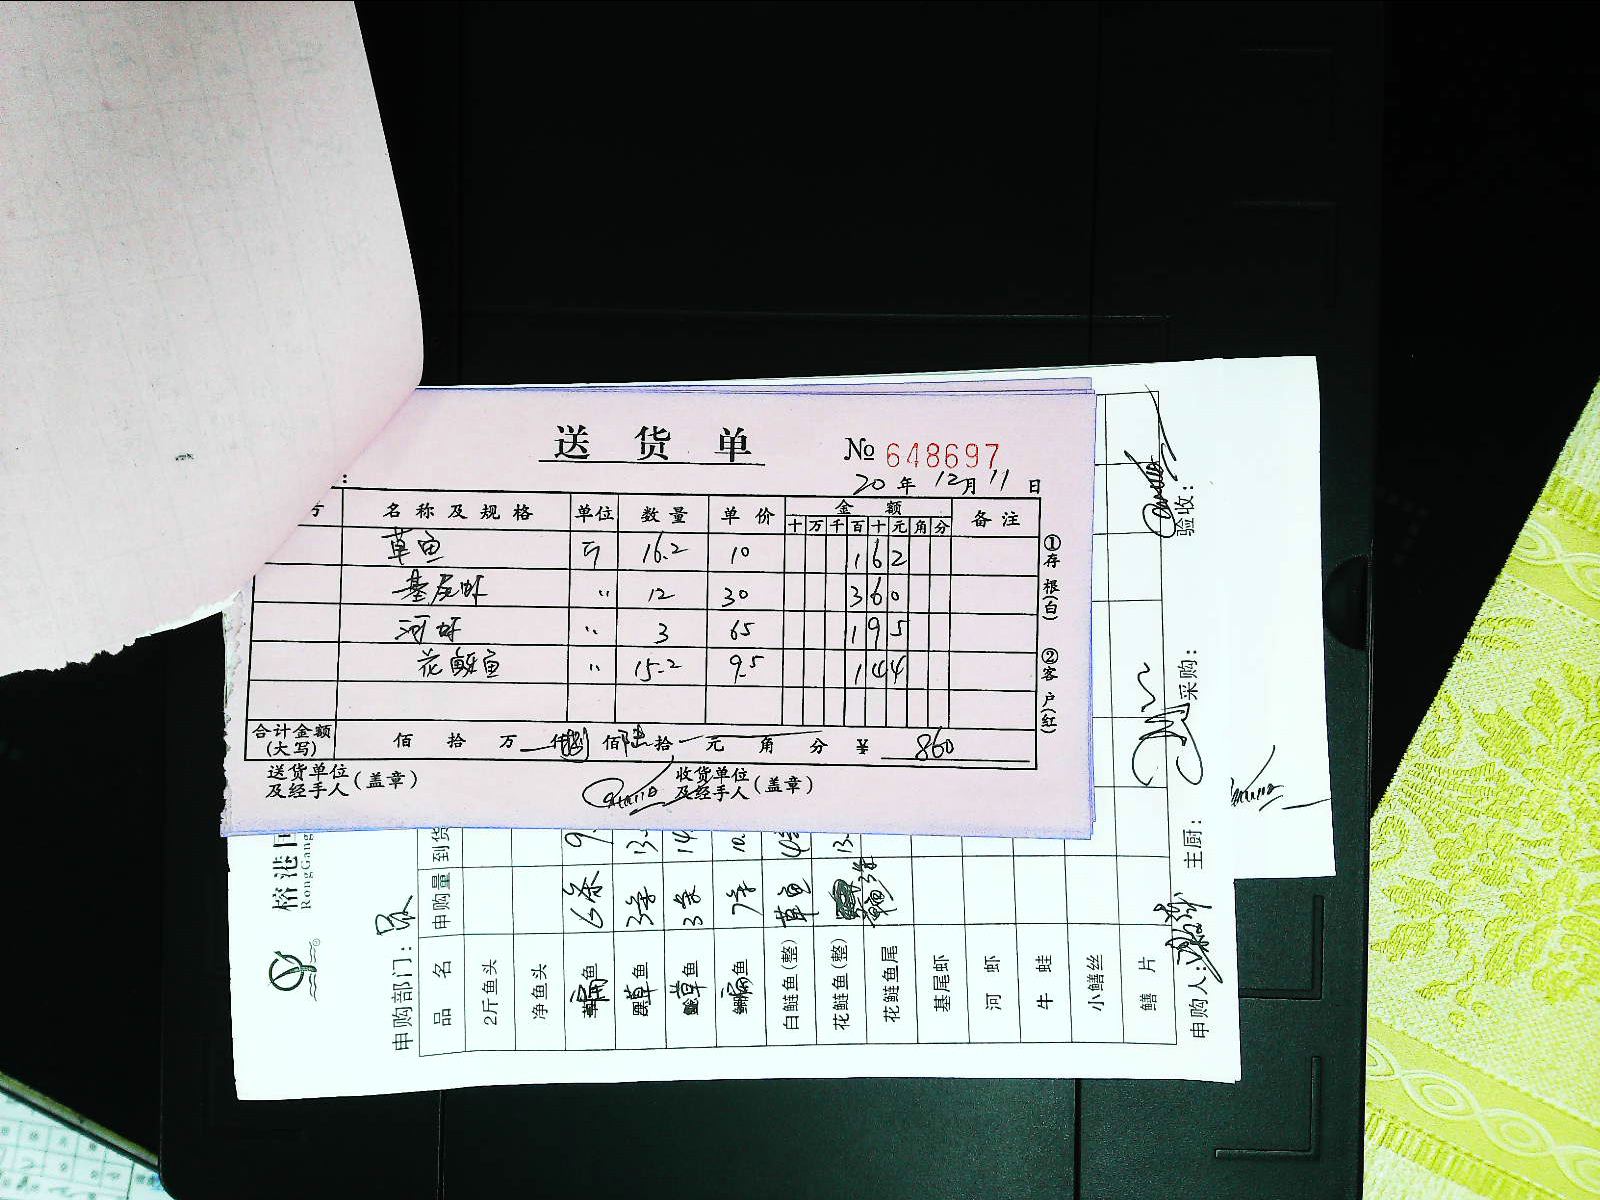 送货单 № 648697
20年12月11日
名称及规格 单位 数量 单价 金额 备注
十 万 千 百 十 元 角 分
草鱼 斤 16.2 10 162
基尾虾 〃 12 30 360
河虾 〃 3 65 195
花鲢鱼 〃 15.2 9.5 144
合计金额(大写) 佰 拾 万 仟捌佰陆拾 元 角 分 ¥ 860
送货单位及经手人(盖章) 收货单位及经手人(盖章)
①存根(白) ②客户(红)
榕港
RongGang
申购部门:
品名 申购量 到货
2斤鱼头
净鱼头
鱼 6条 9.
草鱼 3条 13.
草鱼 3条 14
鱼 7条 10.
白鲢鱼(整) 草鱼
花鲢鱼(整) 13.
花鲢鱼尾
基尾虾
河虾
牛蛙
小鳝丝
鳝片
申购人: 主厨: 采购: 验收: